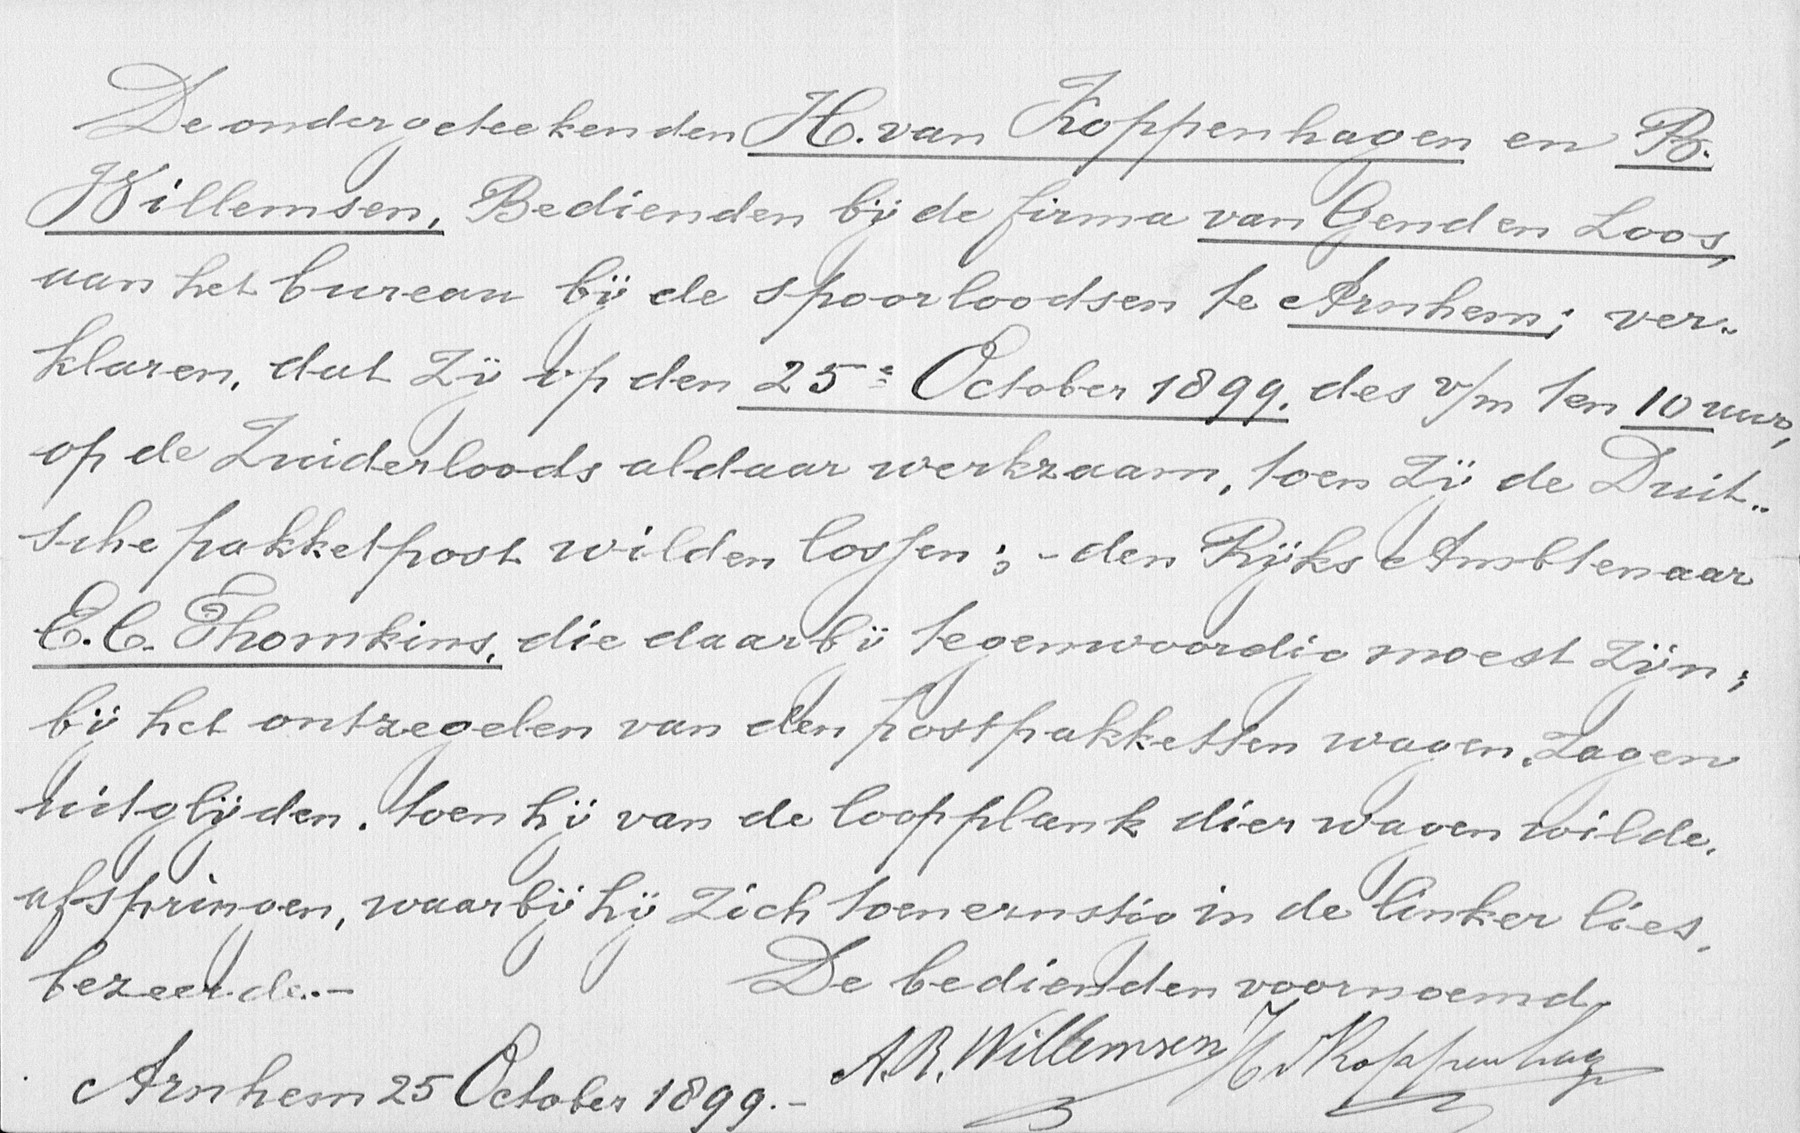 De ondergeteekenden H. van Koppenhagen en B.
Willemsen, Bedienden bij de firma van Gend en Loos,
aan het bureau bij de spoorloodsen te Arnhem; ver-
klaren, dat zij op den 25e October 1899. des v/m ten 10 uur,
op de Zuiderloods aldaar werkzaam, toen zij de Duit-
sche pakketpost wilden lossen; - den Rijks Ambtenaar
E.C. Thomkins, die daarbij tegenwoordig moest zijn;
bij het ontzegelen van den postpakketten wagen, zagen
uitglijden. toen hij van de loopplank dier wagen wilde,
afspringen, waarbij hij zich toen ernstig in de linker lies,
bezeerde.-
De bedienden voornoemd,
A.B. Willemsen H v Koppenhag
Arnhem 25 October 1899.-